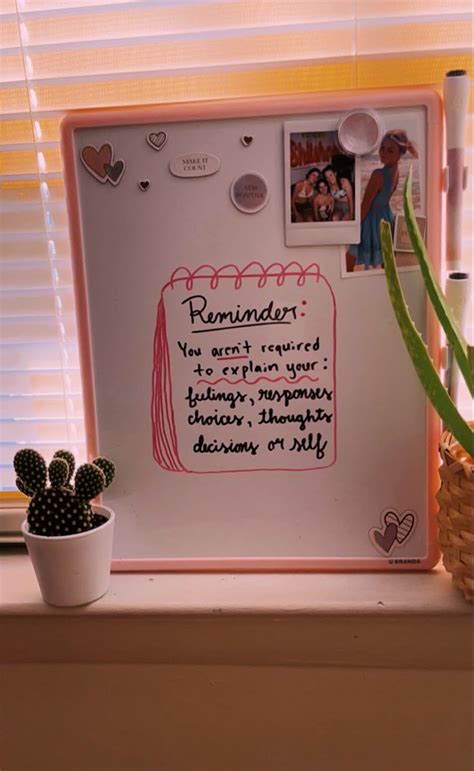 MAKE IT
COUNT
STAY
POSITIVE
Reminder:
You aren't required
to explain your:
feelings, responses
choices, thoughts
decisions or self
U BRANDS